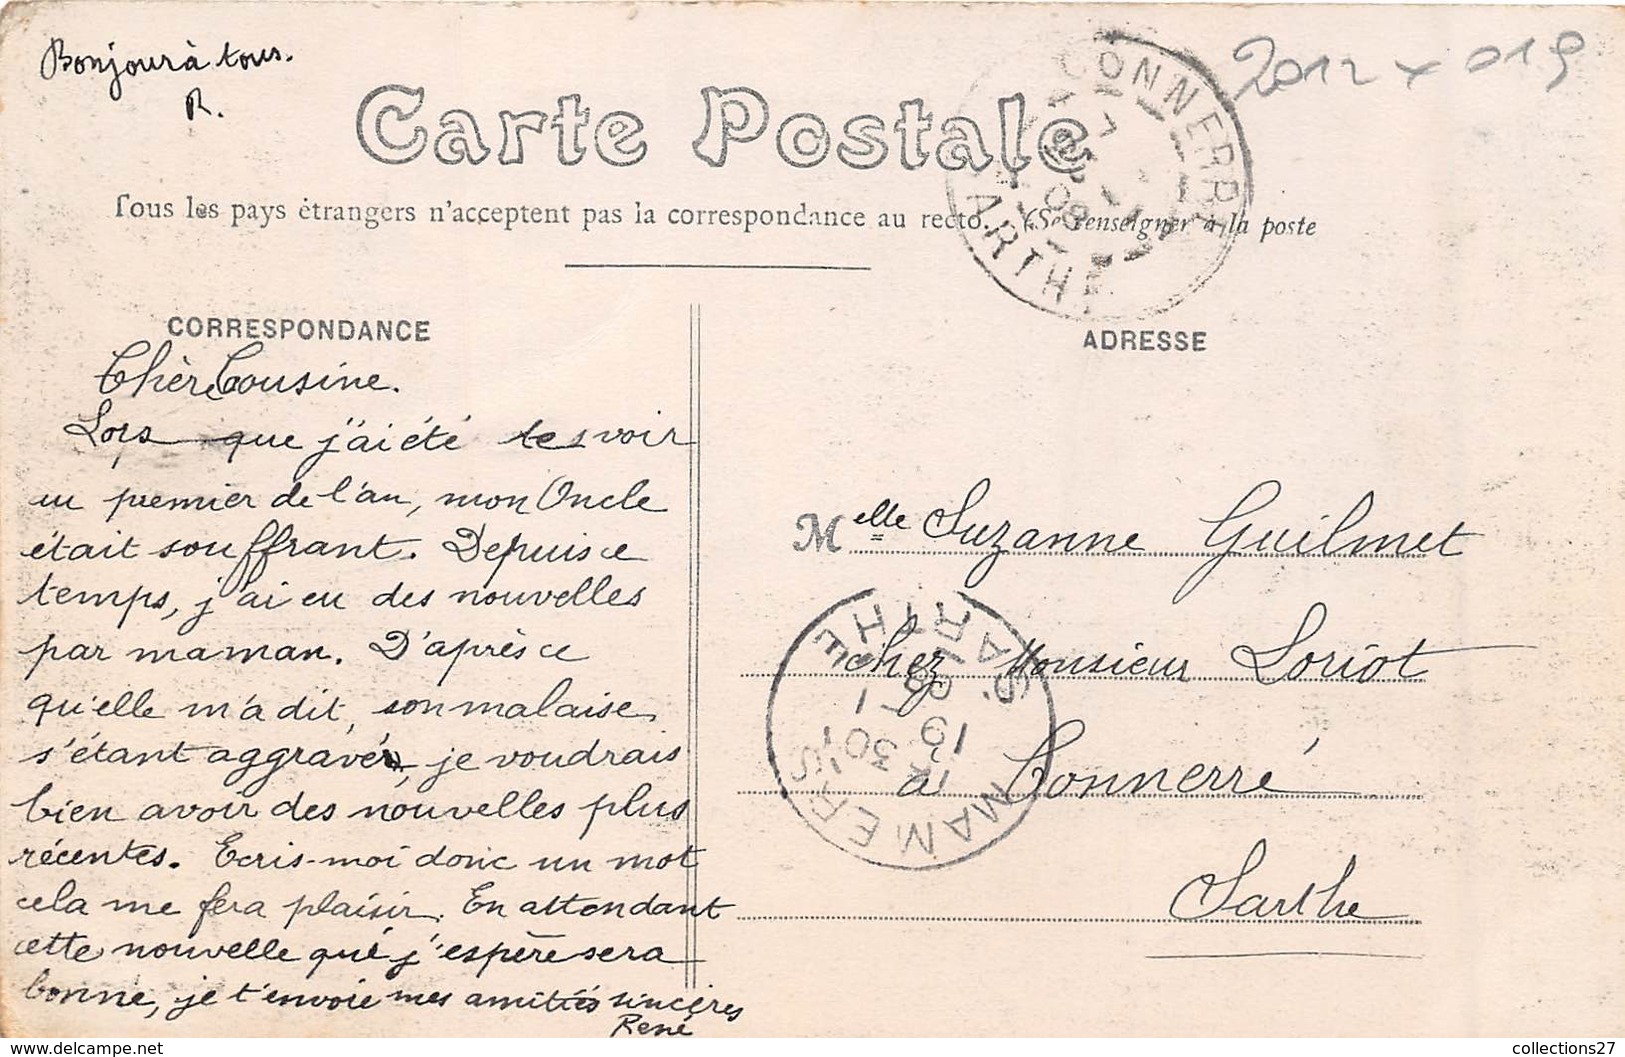 Bonjour à tous.
R.
2012 x 019
Carte Postale
Tous les pays étrangers n'acceptent pas la correspondance au recto. (Se renseigner à la poste
CONNERRE
SARTHE
09
CORRESPONDANCE
Chère Cousine.
Lors que j'ai été te voir
au premier de l'an, mon Oncle
était souffrant. Depuis ce
temps, j'ai eu des nouvelles
par maman. D'après ce
qu'elle m'a dit, son malaise
s'étant aggravé, je voudrais
bien avoir des nouvelles plus
récentes. Ecris-moi donc un mot
cela me fera plaisir. En attendant
cette nouvelle que j'espère sera
bonne, je t'envoie mes amitiés sincères
René
ADRESSE
Melle Suzanne Guilmet
chez Monsieur Loriot
à Connerré
Sarthe
MAMERS
SARTHE
collections27